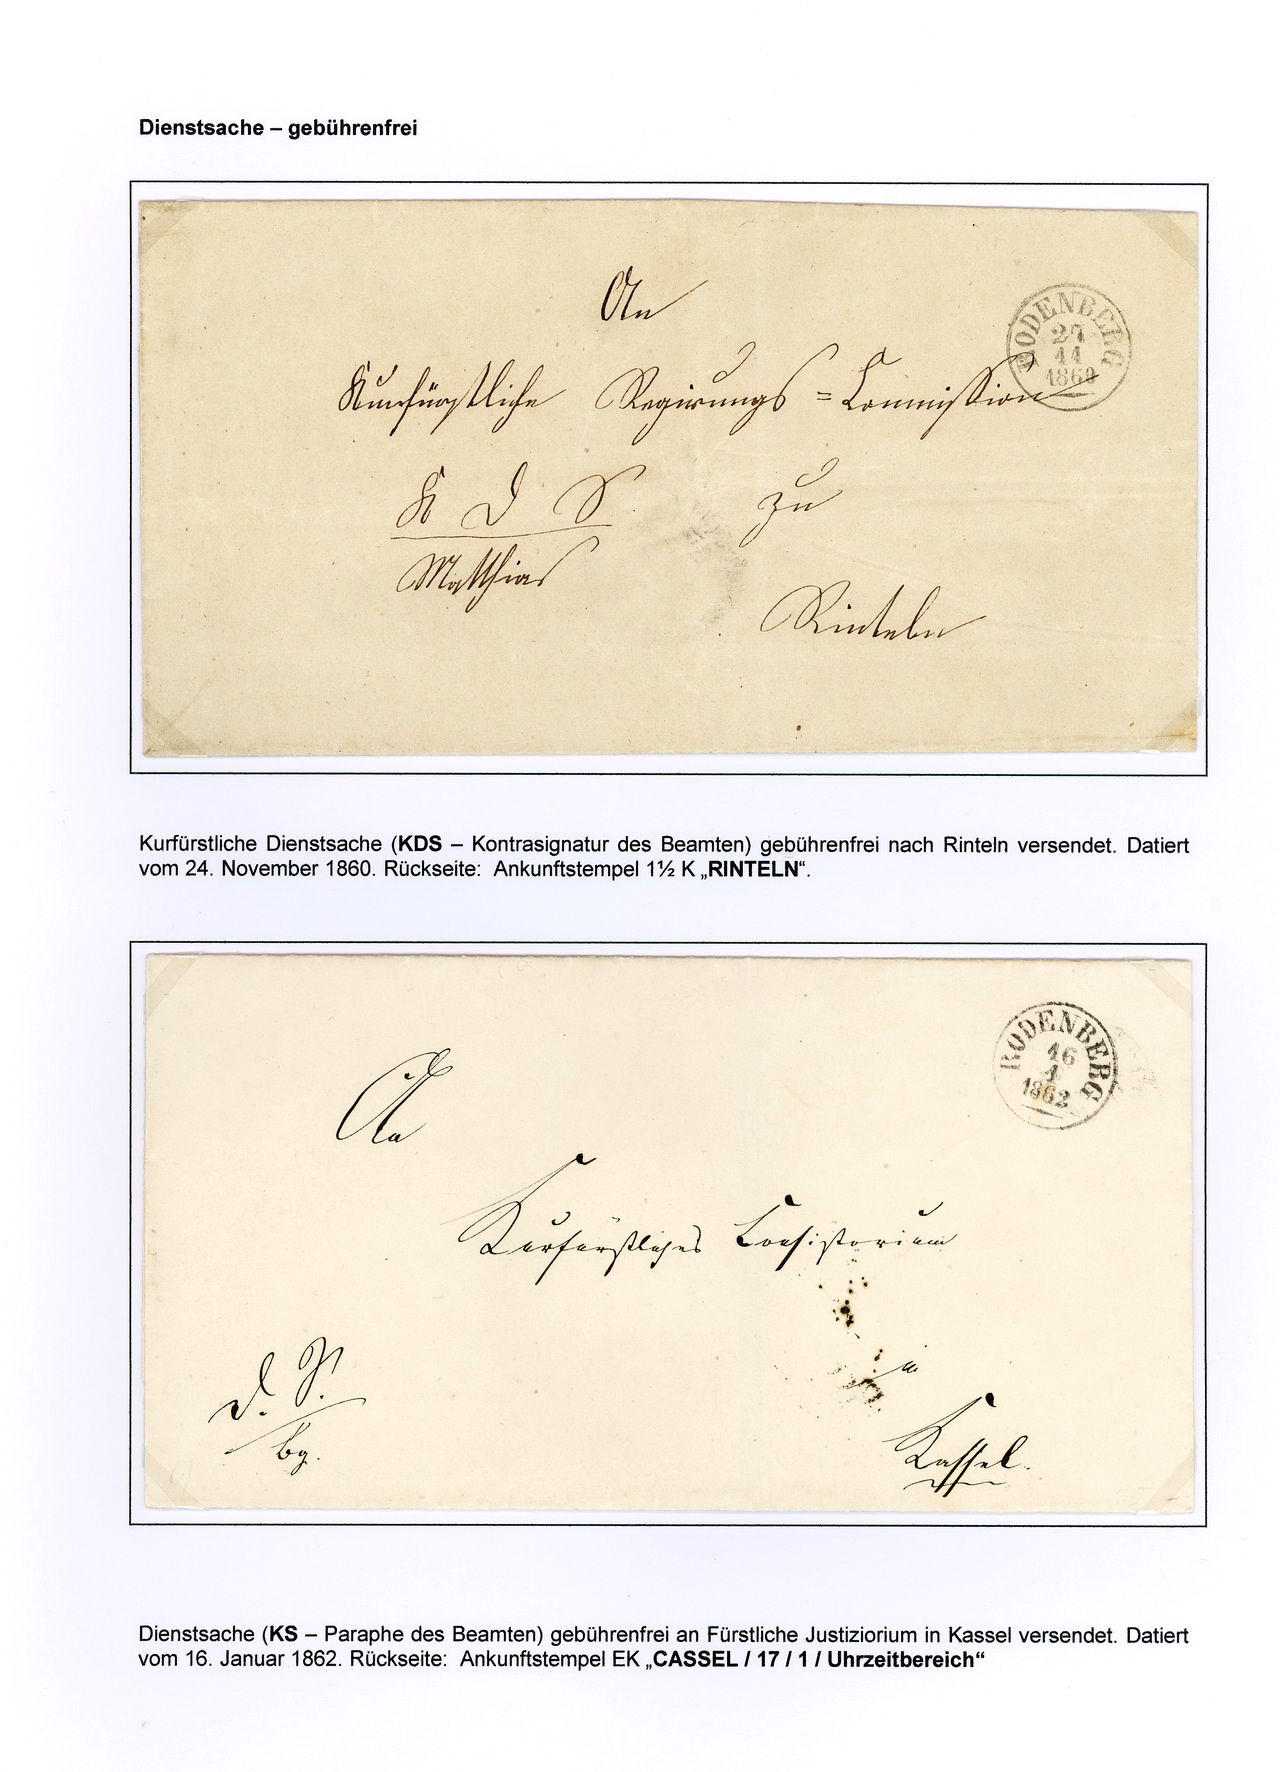 Dienstsache – gebührenfrei
An
RODENBERG
11
1860
Kurfürstliche Regirungs = Commission
K D S
zu
Matthias
Rinteln
Kurfürstliche Dienstsache (KDS – Kontrasignatur des Beamten) gebührenfrei nach Rinteln versendet. Datiert
vom 24. November 1860. Rückseite: Ankunftstempel 1½ K „RINTELN“.
RODENBERG
16
1
1862
An
Kurfürstliches Consistorium
in
D. S.
Kassel.
Dienstsache (KS – Paraphe des Beamten) gebührenfrei an Fürstliche Justiziorium in Kassel versendet. Datiert
vom 16. Januar 1862. Rückseite: Ankunftstempel EK „CASSEL / 17 / 1 / Uhrzeitbereich“